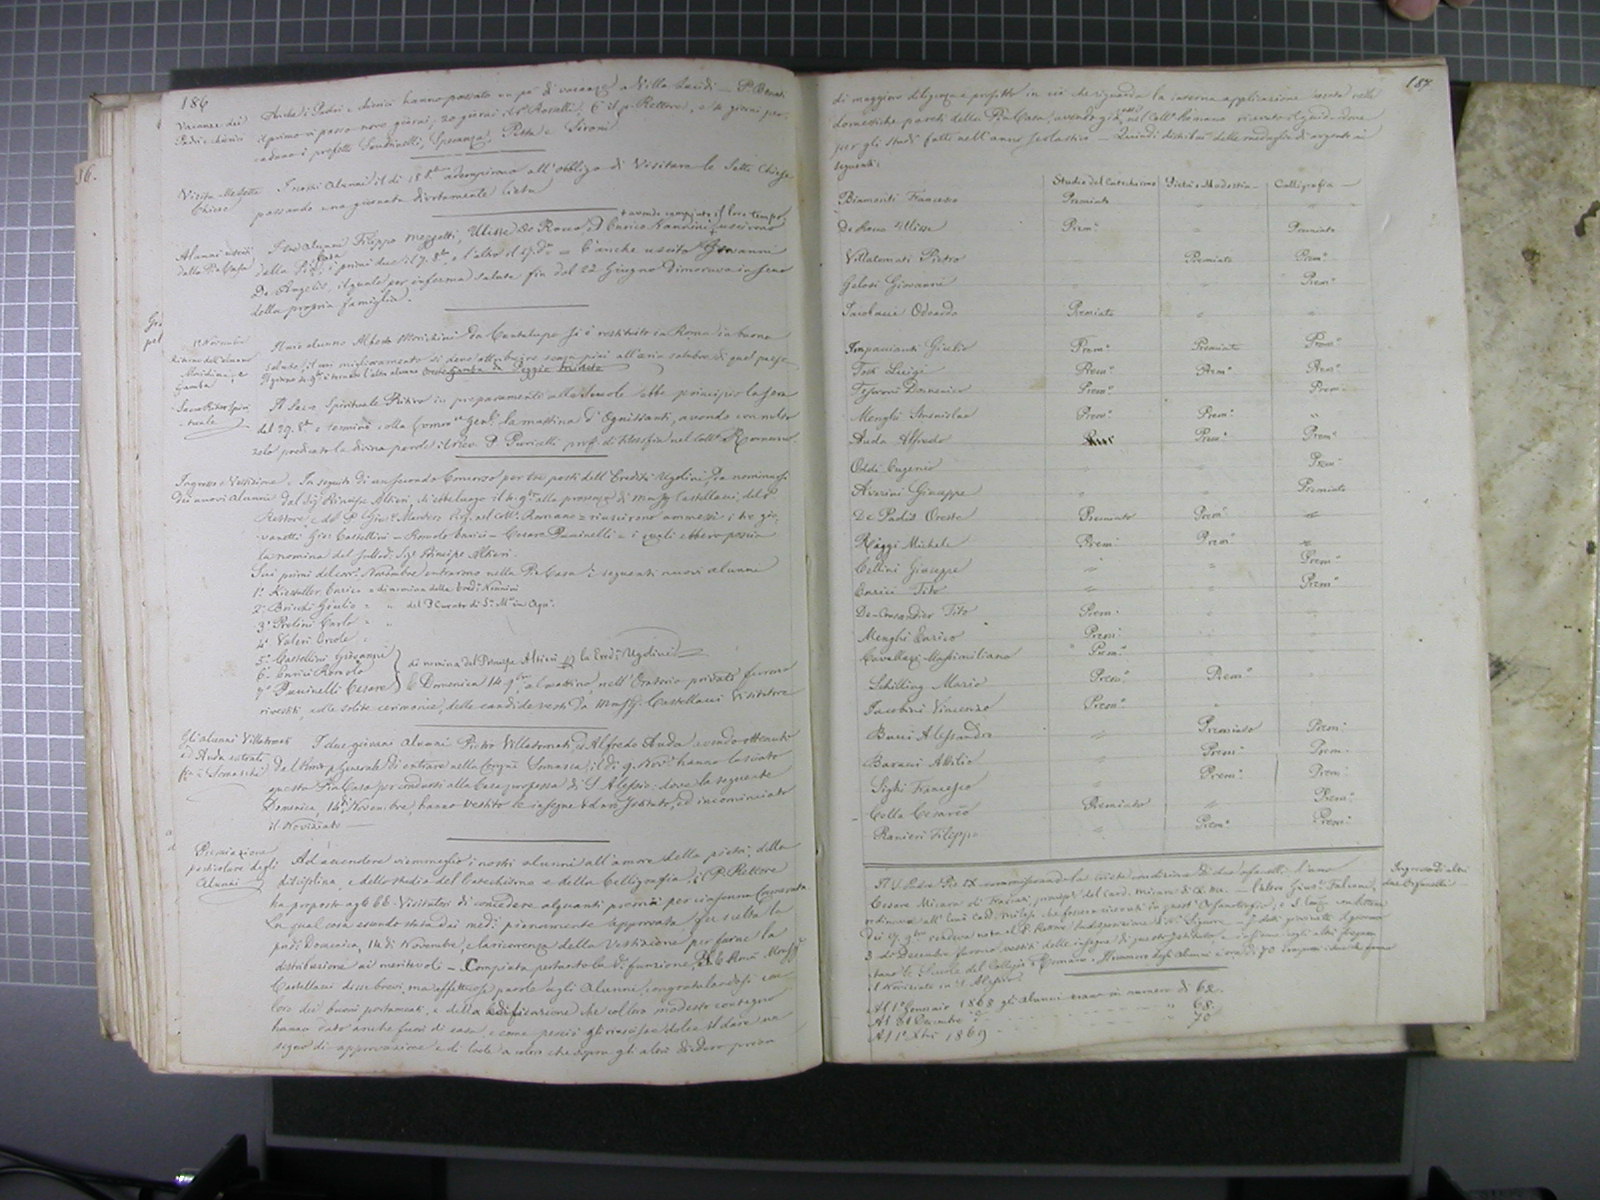 186
Vacanze dei
Padri e chierici
Anche i Padri e chierici hanno passato un po' di vacanze a Villa Lucidi — P.
il primo vi passò nove giorni, 20 giorni il Rosatti. E il p. Rettore, e 4 giorni per
caduno i prefetti Santinelli, Speranza, Pette e Sironi
Visita — Sette
Chiese
I nostri alunni il dì 18 8bre adempirono all'obbligo di Visitare le Sette Chiese
passando una giornata divotamente lieta
+ avendo compiuto il loro tempo,
Alunni usciti
dalla Pia Casa
I tre alunni Filippo Mezzetti, Ulisse De Rocco, ed Enrico Nannini + uscirono
della Pia Casa, i primi due il 7. 8bre e l'altro il 17. do = È anche uscito Giovanni
De Angelis, il quale per inferma salute fin dal 22 Giugno dimorava in seno
della propria famiglia.
1 Novembre
Ritorno dell'alunno
Morichini, e
Gamba
Il mio alunno Alberto Morichini da Cantalupo si è restituito in Roma in buona
salute; il suo miglioramento si deve attribuire senza più all'aria salubre di quel paese
Sacro Ritiro Spiri
tuale
Il Sacro Spirituale Ritiro in preparamento alle Scuole ebbe principio la sera
del 29. 8bre e terminò colla Comne Genle la mattina d'Ognissanti, avendo con molto
zelo predicato la divina parola il rev. P. Puricelli prof. di filosofia nel Coll. Romano
Ingresso e Vestizione
dei nuovi alunni
In seguito di un secondo Concorso per tre posti dell'Eredità Ugolini, da nominarsi
dal Sig. Principe Altieri, ch'ebbe luogo il 4. 9bre alla presenza di Monsig. Castellacci, del P.
Rettore, e del P. Gius. Manfero Prof. nel Coll. Romano = riuscirono ammessi i tre gio-
vanetti Giov. Castellini — Romolo Enrici — Cesare Paninelli = i quali ebbero poscia
la nomina del sullodo Sigr Principe Altieri.
Sui primi del corr. Novembre entrarono nella Pia Casa i seguenti nuovi alunni
1° Kiesaller Enrico = di nomina della Eredità Nannini
2° Brischi Giulio = " del P. Curato di S. Ma in Aqu.
3° Prelini Carlo = "
4° Valeri Ercole =
5° Castellini Giovanni
6° Enrici Romolo
7° Paninelli Cesare
di nomina del Principe Altieri per la Eredità Ugolini
E Domenica 14 9bre, al mattino, nell'Oratorio privato furono
rivestiti, colle solite cerimonie, delle candide vesti da Monsig. Castellacci Visitatore
Gli alunni Villatomati
ed Auda entrati
fra i Somaschi
I due giovani alunni Pietro Villatomati, ed Alfredo Auda avendo ottenuto
dal Pmo P. Generale di entrare nella Congne Somasca, il dì 9. Nov. hanno lasciato
questa Pia Casa per condursi alla Casa professa di S. Alessio: dove la seguente
Domenica, 14 Novembre, hanno vestito le insegne di loro Istituto, ed incominciato
il Noviziato —
Premiazione
particolare degli
Alunni
Ad accendere viemmeglio i nostri alunni all'amore della pietà, della
disciplina, e dello studio del Catechismo e della Calligrafia, il P. Rettore
ha proposto agli E.E. Visitatori di concedere alquanti premii per ciascuna Camerata
La qual cosa essendo stata dai medmi pienamente approvata, fu scelta la
pradi Domenica, 14 di Novembre, e la ricorrenza della Vestizione per farne la
distribuzione ai meritevoli — Compiuta pertanto la di funzione, S.E. Rma Monsigr
Castellacci disse brevi, ma affettuose parole agli alunni, congratulandosi con
loro dei buoni portamenti, e della edificazione che col loro modesto contegno
hanno dato anche fuori di casa, e come perciò gli riuscisse dolce il dare un
segno di approvazione e di lode a coloro che sopra gli altri diedero prova
187
di maggior diligenza e profitto in ciò che riguarda la interna applicazione usata nelle
domestiche pareti della Pia Casa, avendo già essi nel Coll. Romano ricevuto il guiderdone
per gli studi fatti nell'anno scolastico. — Quindi distribuì delle medaglie di argento ai
seguenti:
Studio del Catechismo Pietà e Modestia — Calligrafia —
Biamonti Francesco Premiato
De Rocco Ulisse Prem° Premiato
Villatomati Pietro Premiato Prem°
Gelosi Giovanni " Prem°
Jacobacci Odoardo Premiato "
Impaccianti Giulio Prem° Premiato Prem°
Tosti Luigi Prem° Prem° Prem°
Tesseroni Domenico Prem° Prem.
Menghi Stanislao Prem° Prem° "
Auda Alfredo Prem° Prem°
Oddi Eugenio " Prem°
Averini Giuseppe " " Premiato
De Paolis Oreste Premiato Prem° "
Raggi Michele Prem° Prem° "
Cellini Giuseppe " " Prem°
Enrici Tito " Prem°
De-Consandier Tito Prem. "
Menghi Enrico Prem:
Cavallazzi Massimiliano Prem°
Schilling Mario Prem° Prem°
Jacobini Vincenzo Prem° "
Bucci Alessandro " Premiato Prem°
Baracci Abilio Prem° Prem.
Sighi Francesco " Prem° Prem.
Colla Cesareo Premiato " Prem°
Ranieri Filippo " Prem° Prem°
Ingresso di altri
due Orfanelli
Il S. Padre Pio IX commiserando la triste condizione di due orfanelli, l'uno
Cesare Micara di Frascati, pronipote del Card. Micara di ch. me. — l'altro Gius. Falcioni,
ordinava all' Emo Card. Milesi che fossero ricevuti in quest'Orfanotrofio; e S. Emza con lettera
dei 27. 9bre rendeva nota al P. Rettore la disposizione di N. Signore — I detti giovanetti il giorno
3 di Decembre furono vestiti delle insegne di questo Istituto, e insieme cogli altri frequen-
tano le Scuole del Collegio Romano. Il numero degli alunni è ora di 70 compresi i due che fanno
il Noviziato in S. Alessio.
Al 1° Gennaio 1868 gli alunni erano in numero di 62.
Al 31 Decembre " " 68.
Al 1° Xbre 1869 70